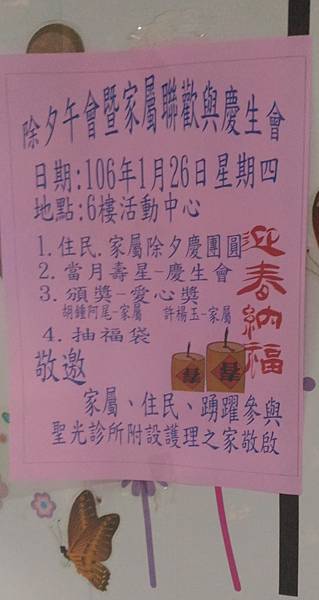 除夕午會暨家屬聯歡與慶生會
日期:106年1月26日星期四
地點:6樓活動中心
1.住民.家屬除夕慶團圓
2.當月壽星-慶生會
3.頒獎-愛心獎
胡鍾阿尾-家屬 許楊玉-家屬
4.抽福袋
迎春納福
敬邀
春
春
家屬、住民、踴躍參與
聖光診所附設護理之家敬啟